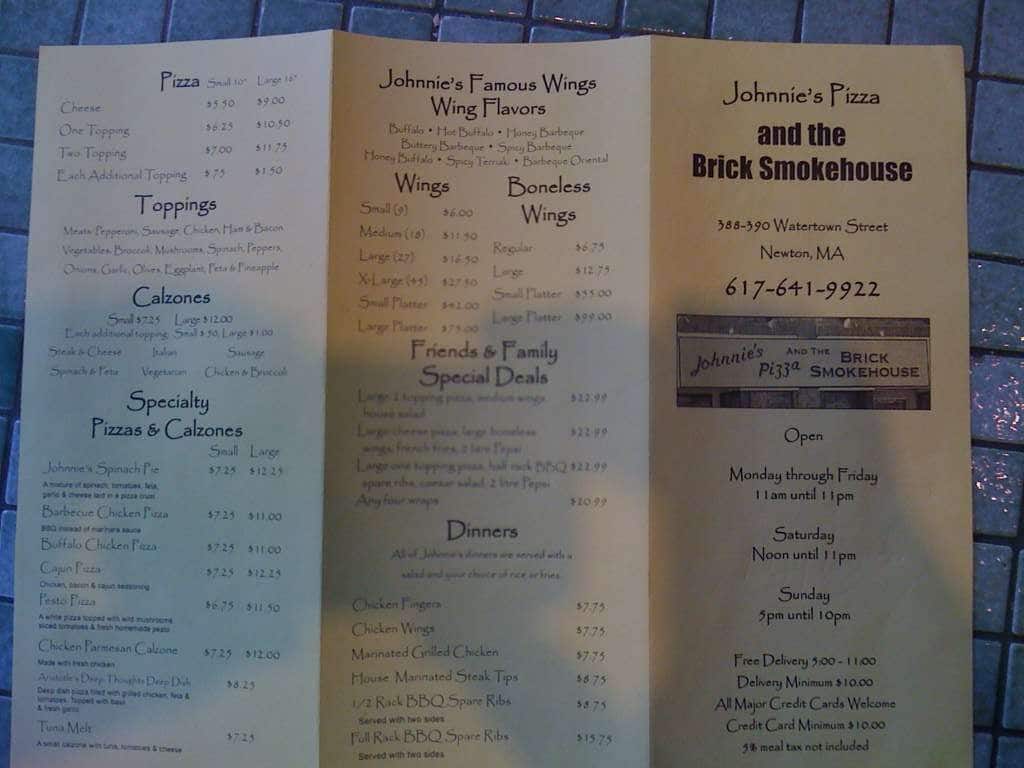 Pizza Small 10" Large 16"
Cheese $5.50 $9.00
One Topping $6.25 $10.50
Two Topping $7.00 $11.75
Each Additional Topping $.75 $1.50
Toppings
Meats: Pepperoni, Sausage, Chicken, Ham & Bacon
Vegetables: Broccoli, Mushrooms, Spinach, Peppers,
Onions, Garlic, Olives, Eggplant, Feta & Pineapple
Calzones
Small $7.25 Large $12.00
Each additional topping, Small $.50, Large $1.00
Steak & Cheese Italian Sausage
Spinach & Feta Vegetarian Chicken & Broccoli
Specialty
Pizzas & Calzones
Small Large
Johnnie's Spinach Pie $7.25 $12.25
A mixture of spinach, tomatoes, feta,
garlic & cheese laid in a pizza crust
Barbecue Chicken Pizza $7.25 $11.00
BBQ instead of marinara sauce
Buffalo Chicken Pizza $7.25 $11.00
Cajun Pizza $7.25 $12.25
Chicken, bacon & cajun seasoning
Pesto Pizza $6.75 $11.50
A white pizza topped with wild mushrooms
sliced tomatoes & fresh homemade pesto
Chicken Parmesan Calzone $7.25 $12.00
Made with fresh chicken
Aristotle's Deep Thoughts Deep Dish $8.25
Deep dish pizza filled with grilled chicken, feta &
tomatoes. Topped with basil
& fresh garlic
Tuna Melt $7.25
A small calzone with tuna, tomatoes & cheese
Johnnie's Famous Wings
Wing Flavors
Buffalo • Hot Buffalo • Honey Barbeque
Buttery Barbeque • Spicy Barbeque
Honey Buffalo • Spicy Terriaki • Barbeque Oriental
Wings
Small (9) $6.00
Medium (18) $11.50
Large (27) $16.50
X-Large (45) $27.50
Small Platter $42.00
Large Platter $75.00
Boneless
Wings
Regular $6.75
Large $12.75
Small Platter $55.00
Large Platter $99.00
Friends & Family
Special Deals
Large 2 topping pizza, medium wings, $22.99
house salad
Large cheese pizza, large boneless $22.99
wings, french fries, 2 litre Pepsi
Large one topping pizza, half rack BBQ $22.99
spare ribs, caesar salad, 2 litre Pepsi
Any four wraps $20.99
Dinners
All of Johnnie's dinners are served with a
salad and your choice of rice or fries.
Chicken Fingers $7.75
Chicken Wings $7.75
Marinated Grilled Chicken $7.75
House Marinated Steak Tips $8.75
1/2 Rack BBQ Spare Ribs $8.75
Served with two sides
Full Rack BBQ Spare Ribs $15.75
Served with two sides
Johnnie's Pizza
and the
Brick Smokehouse
388-390 Watertown Street
Newton, MA
617-641-9922
Johnnie's Pizza AND THE BRICK SMOKEHOUSE
Open
Monday through Friday
11am until 11pm
Saturday
Noon until 11pm
Sunday
5pm until 10pm
Free Delivery 5:00 - 11:00
Delivery Minimum $10.00
All Major Credit Cards Welcome
Credit Card Minimum $10.00
5% meal tax not included